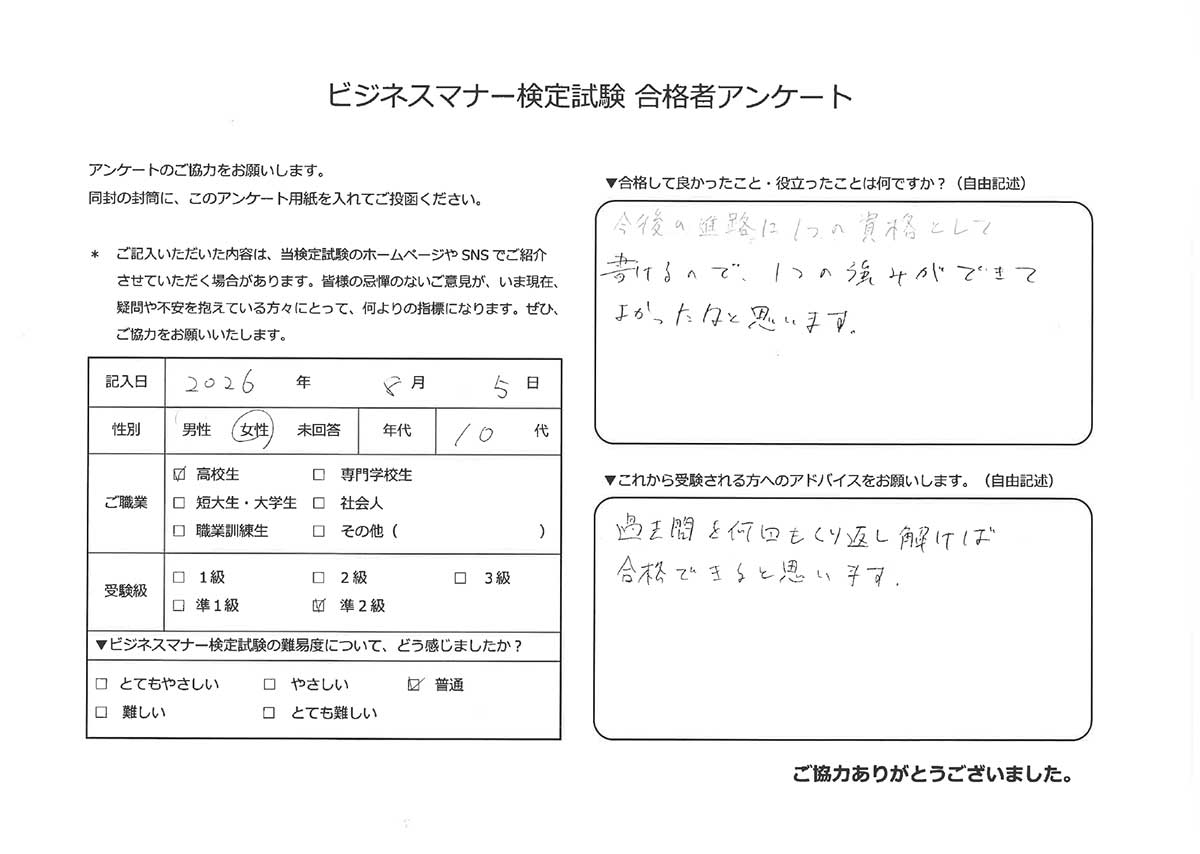 ビジネスマナー検定試験 合格者アンケート
アンケートのご協力をお願いします。
同封の封筒に、このアンケート用紙を入れてご投函ください。
* ご記入いただいた内容は、当検定試験のホームページや SNS でご紹介
させていただく場合があります。皆様の忌憚のないご意見が、いま現在、
疑問や不安を抱えている方々にとって、何よりの指標になります。ぜひ、
ご協力をお願いいたします。
記入日 2026 年 8 月 5 日
性別 男性 女性 未回答 年代 10 代
ご職業
☑ 高校生 □ 専門学校生
□ 短大生・大学生 □ 社会人
□ 職業訓練生 □ その他 ( )
受験級
□ 1級 □ 2級 □ 3級
□ 準1級 ☑ 準2級
▼ビジネスマナー検定試験の難易度について、どう感じましたか？
□ とてもやさしい □ やさしい ☑ 普通
□ 難しい □ とても難しい
▼合格して良かったこと・役立ったことは何ですか？（自由記述）
今後の進路に1つの資格として
書けるので、1つの強みができて
よかったなと思います。
▼これから受験される方へのアドバイスをお願いします。（自由記述）
過去問を何回もくり返し解けば
合格できると思います。
ご協力ありがとうございました。